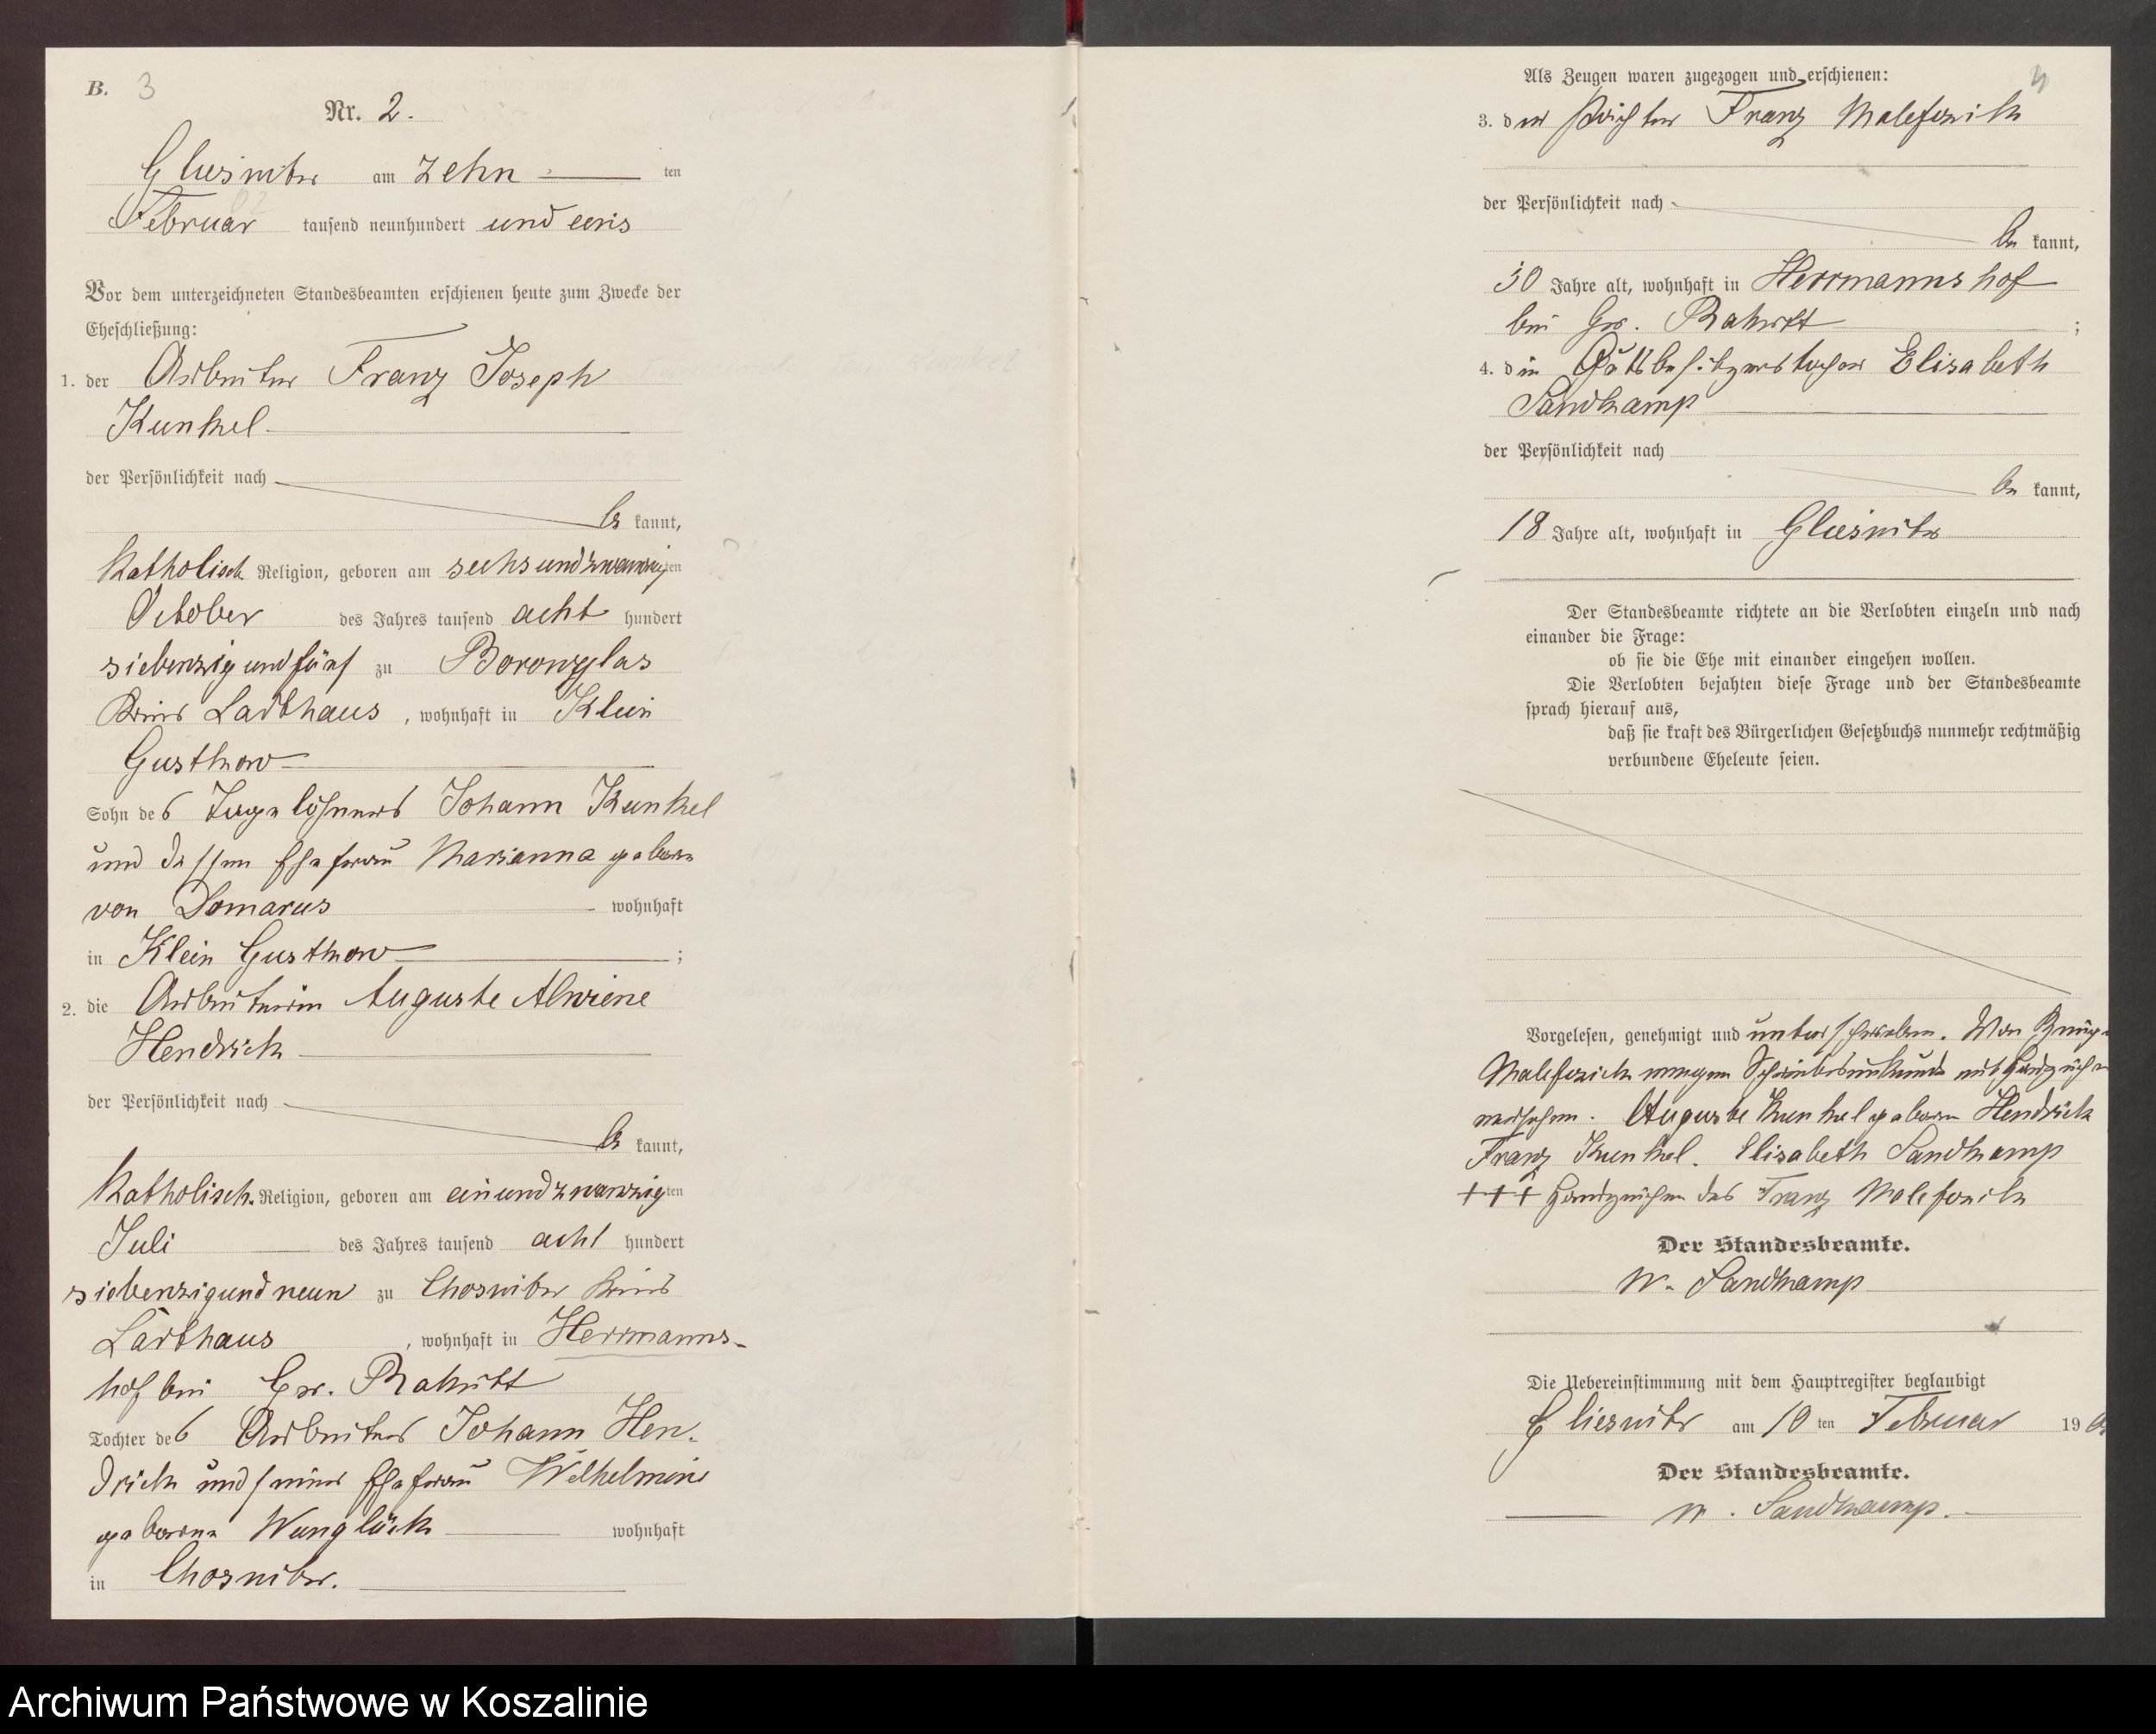 B. 3
Nr. 2.
Gliesnitz am zehn ten
Februar tausend neunhundert und eins
Vor dem unterzeichneten Standesbeamten erschienen heute zum Zwecke der
Eheschließung:
1. der Arbeiter Franz Joseph
Kunkel
der Persönlichkeit nach
be kannt,
katholisch Religion, geboren am sechsundzwanzigten
October des Jahres tausend acht hundert
siebenzig und fünf zu
Kreis, wohnhaft in Klein
Gusthow
Sohn des Tagelöhners Johann Kunkel
und dessen Ehefrau Marianna geborn
von Domarus wohnhaft
in Klein Gusthow ;
2. die Arbeiterin Auguste Alwiene
Hendrick
der Persönlichkeit nach
be kannt,
katholisch. Religion, geboren am einundzwanzigten
Juli des Jahres tausend acht hundert
siebenzigundneun zu Chosnitz Kreis
, wohnhaft in Herrmanns-
hof bei Gr. Rakitt
Tochter des Arbeiters Johann Hen-
drick und seiner Ehefrau Wilhelmine
geborene Wunglück wohnhaft
in Chosnitz.
4
Als Zeugen waren zugezogen und erschienen:
3. der Franz Malefzick
der Persönlichkeit nach
be kannt,
50 Jahre alt, wohnhaft in Herrmannshof
bei Gr. Rakitt ;
4. die Gutsbesitzerstochter Elisabeth
Sandkamp
der Persönlichkeit nach
be kannt,
18 Jahre alt, wohnhaft in Gliesnitz
Der Standesbeamte richtete an die Verlobten einzeln und nach
einander die Frage:
ob sie die Ehe mit einander eingehen wollen.
Die Verlobten bejahten diese Frage und der Standesbeamte
sprach hierauf aus,
daß sie kraft des Bürgerlichen Gesetzbuchs nunmehr rechtmäßig
verbundene Eheleute seien.
Vorgelesen, genehmigt und unterschrieben. Von Zeuge
Malefzick wegen Schreibensunkunde mit Handzeichen
versehen. Auguste Kunkel geborn Hendrick
Franz Kunkel. Elisabeth Sandkamp
+++ Handzeichen des Franz Malefzick
Der Standesbeamte.
W. Sandkamp
Die Uebereinstimmung mit dem Hauptregister beglaubigt
Gliesnitz am 10 ten Februar 190
Der Standesbeamte.
W. Sandkamp.
Archiwum Państwowe w Koszalinie